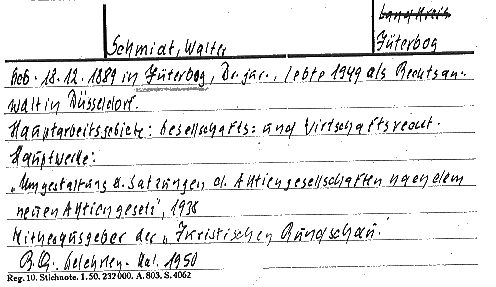 Land Kreis
Schmidt, Walter
Jüterbog
geb. 18.12.1889 in Jüterbog, Dr. jur., lebte 1949 als Rechtsan-
walt in Düsseldorf.
Hauptarbeitsgebiete: Gesellschafts- und Wirtschaftsrecht.
Hauptwerke:
„Umgestaltung d. Satzungen d. Aktiengesellschaften nach dem
neuen Aktiengesetz", 1938
Mitherausgeber der „Juristischen Rundschau."
Gelehrten-Kal. 1950
Reg. 10. Stichnote. 1. 50. 232000. A. 803. S. 4062